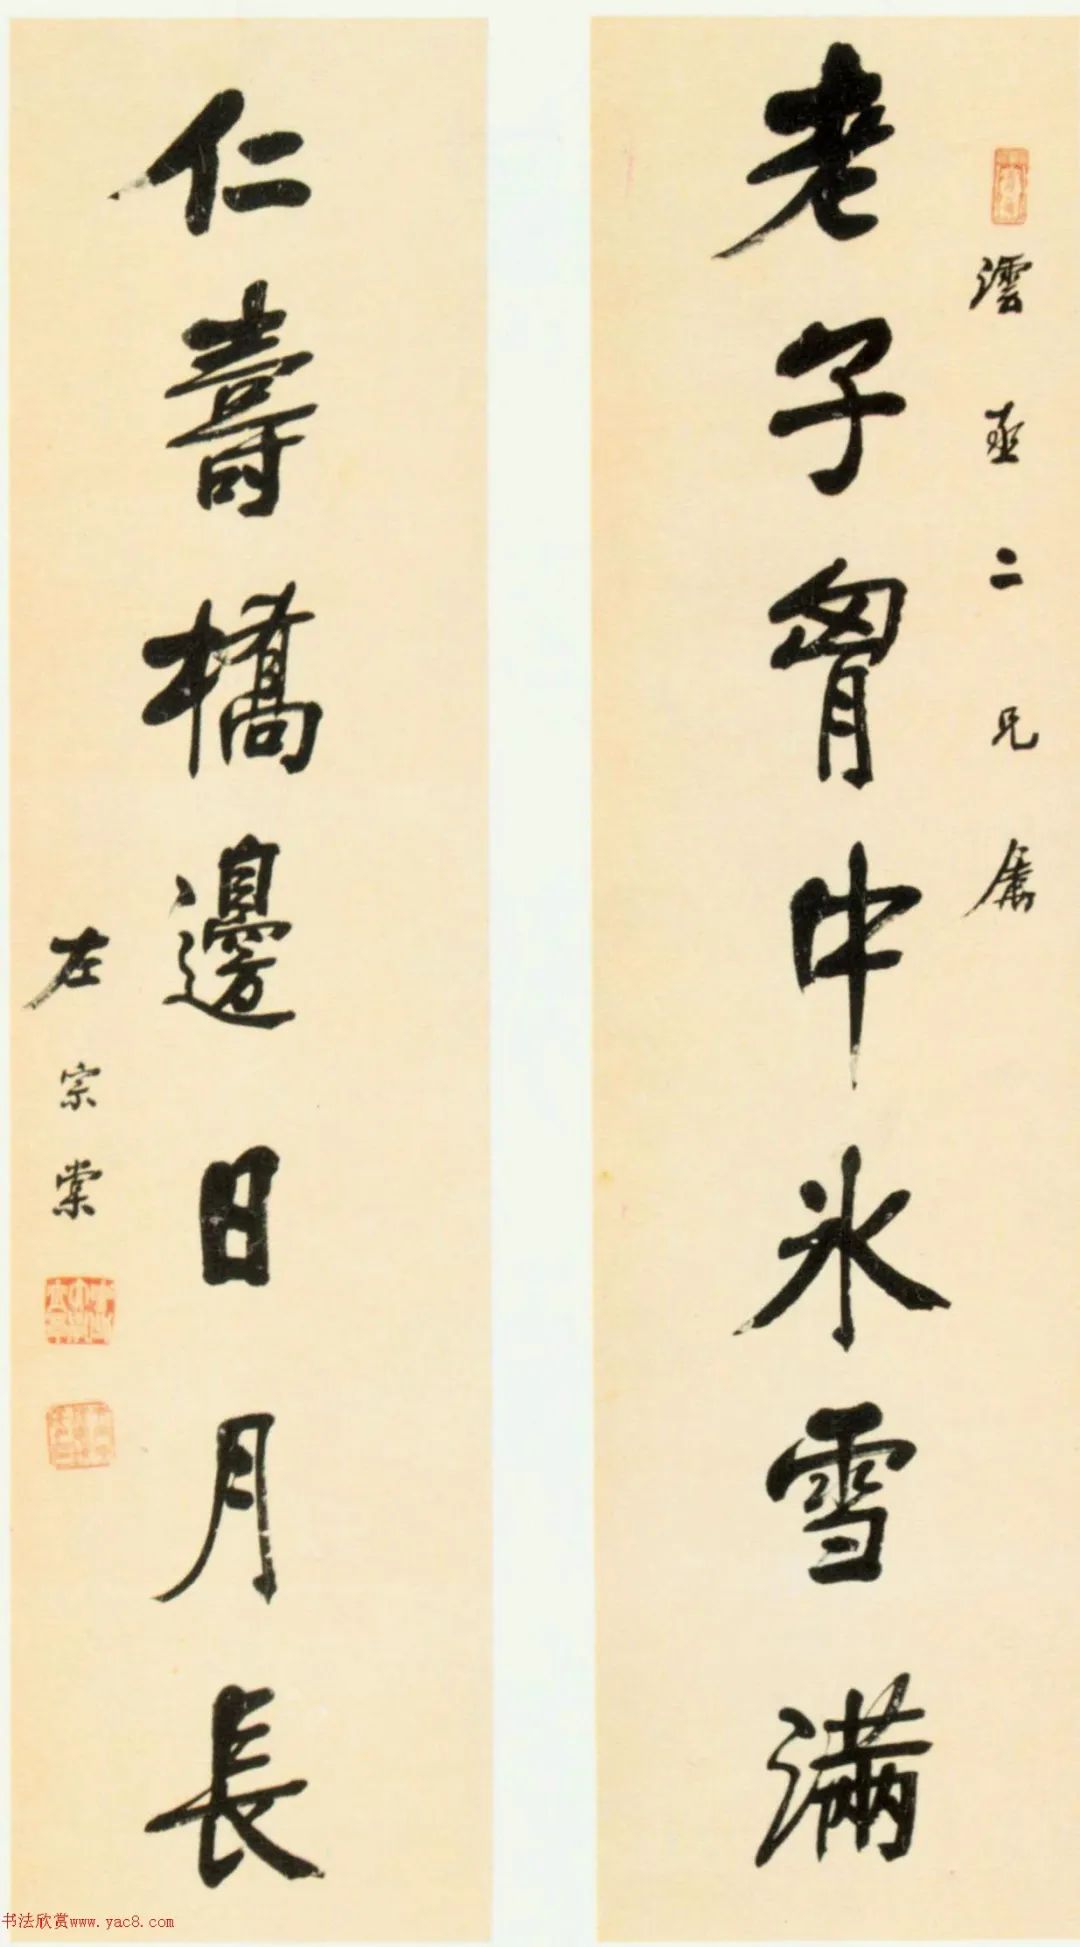 澐亟二兄属
老子胷中冰雪滿
仁壽橋邊日月長
左宗棠
书法欣赏www.yac8.com